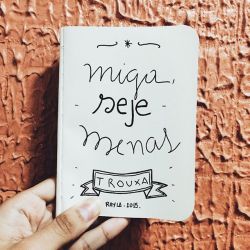 miga,
seje
menas
TROUXA
RAYLA . 2015.